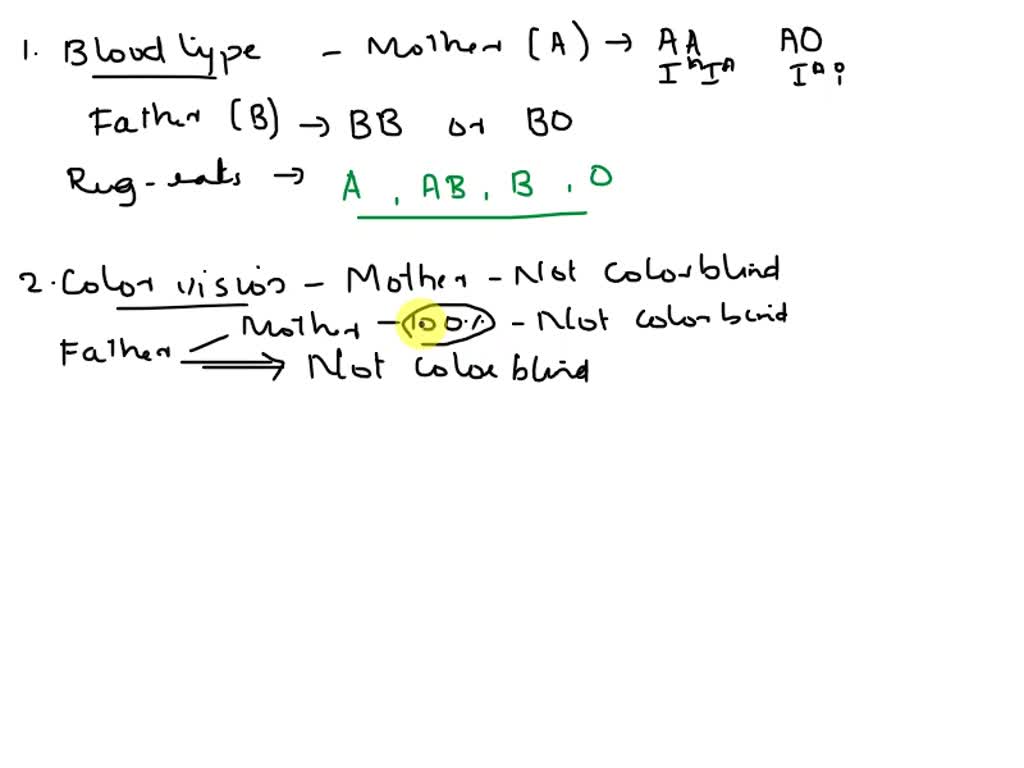 1. Blood type - Mother (A) → AA AO
I^A I^A I^A i
Father (B) → BB or BO
Rug-eats → A, AB, B, O
2. Color vision - Mother - Not colorblind
Mother - 100% - Not colorblind
Father → Not colorblind